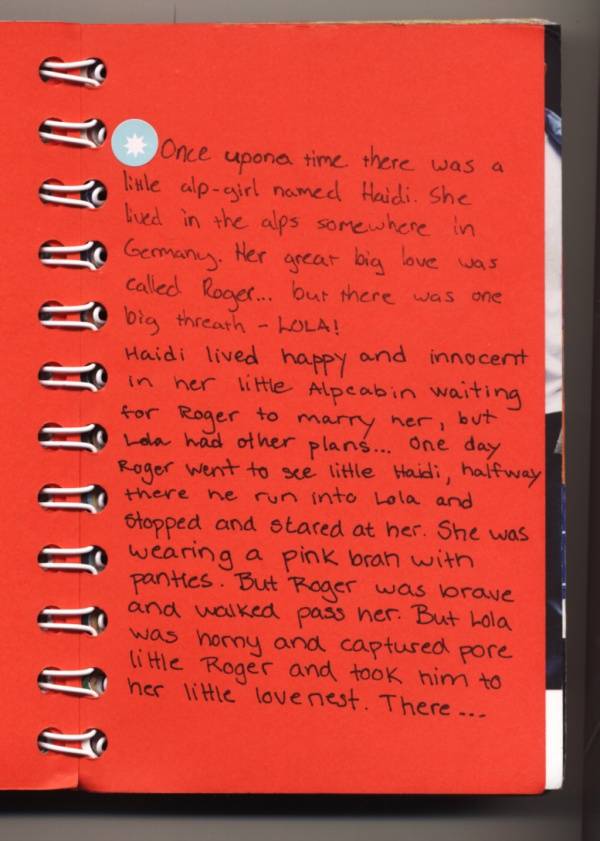 Once upona time there was a
little alp-girl named Haidi. She
lived in the alps somewhere in
Germany. Her great big love was
called Roger... but there was one
big threath - LOLA!
Haidi lived happy and innocent
in her little Alpcabin waiting
for Roger to marry her, but
Lola had other plans... One day
Roger went to see little Haidi, halfway
there he run into Lola and
stopped and stared at her. She was
wearing a pink brah with
panties. But Roger was brave
and walked pass her. But Lola
was horny and captured pore
little Roger and took him to
her little lovenest. There...